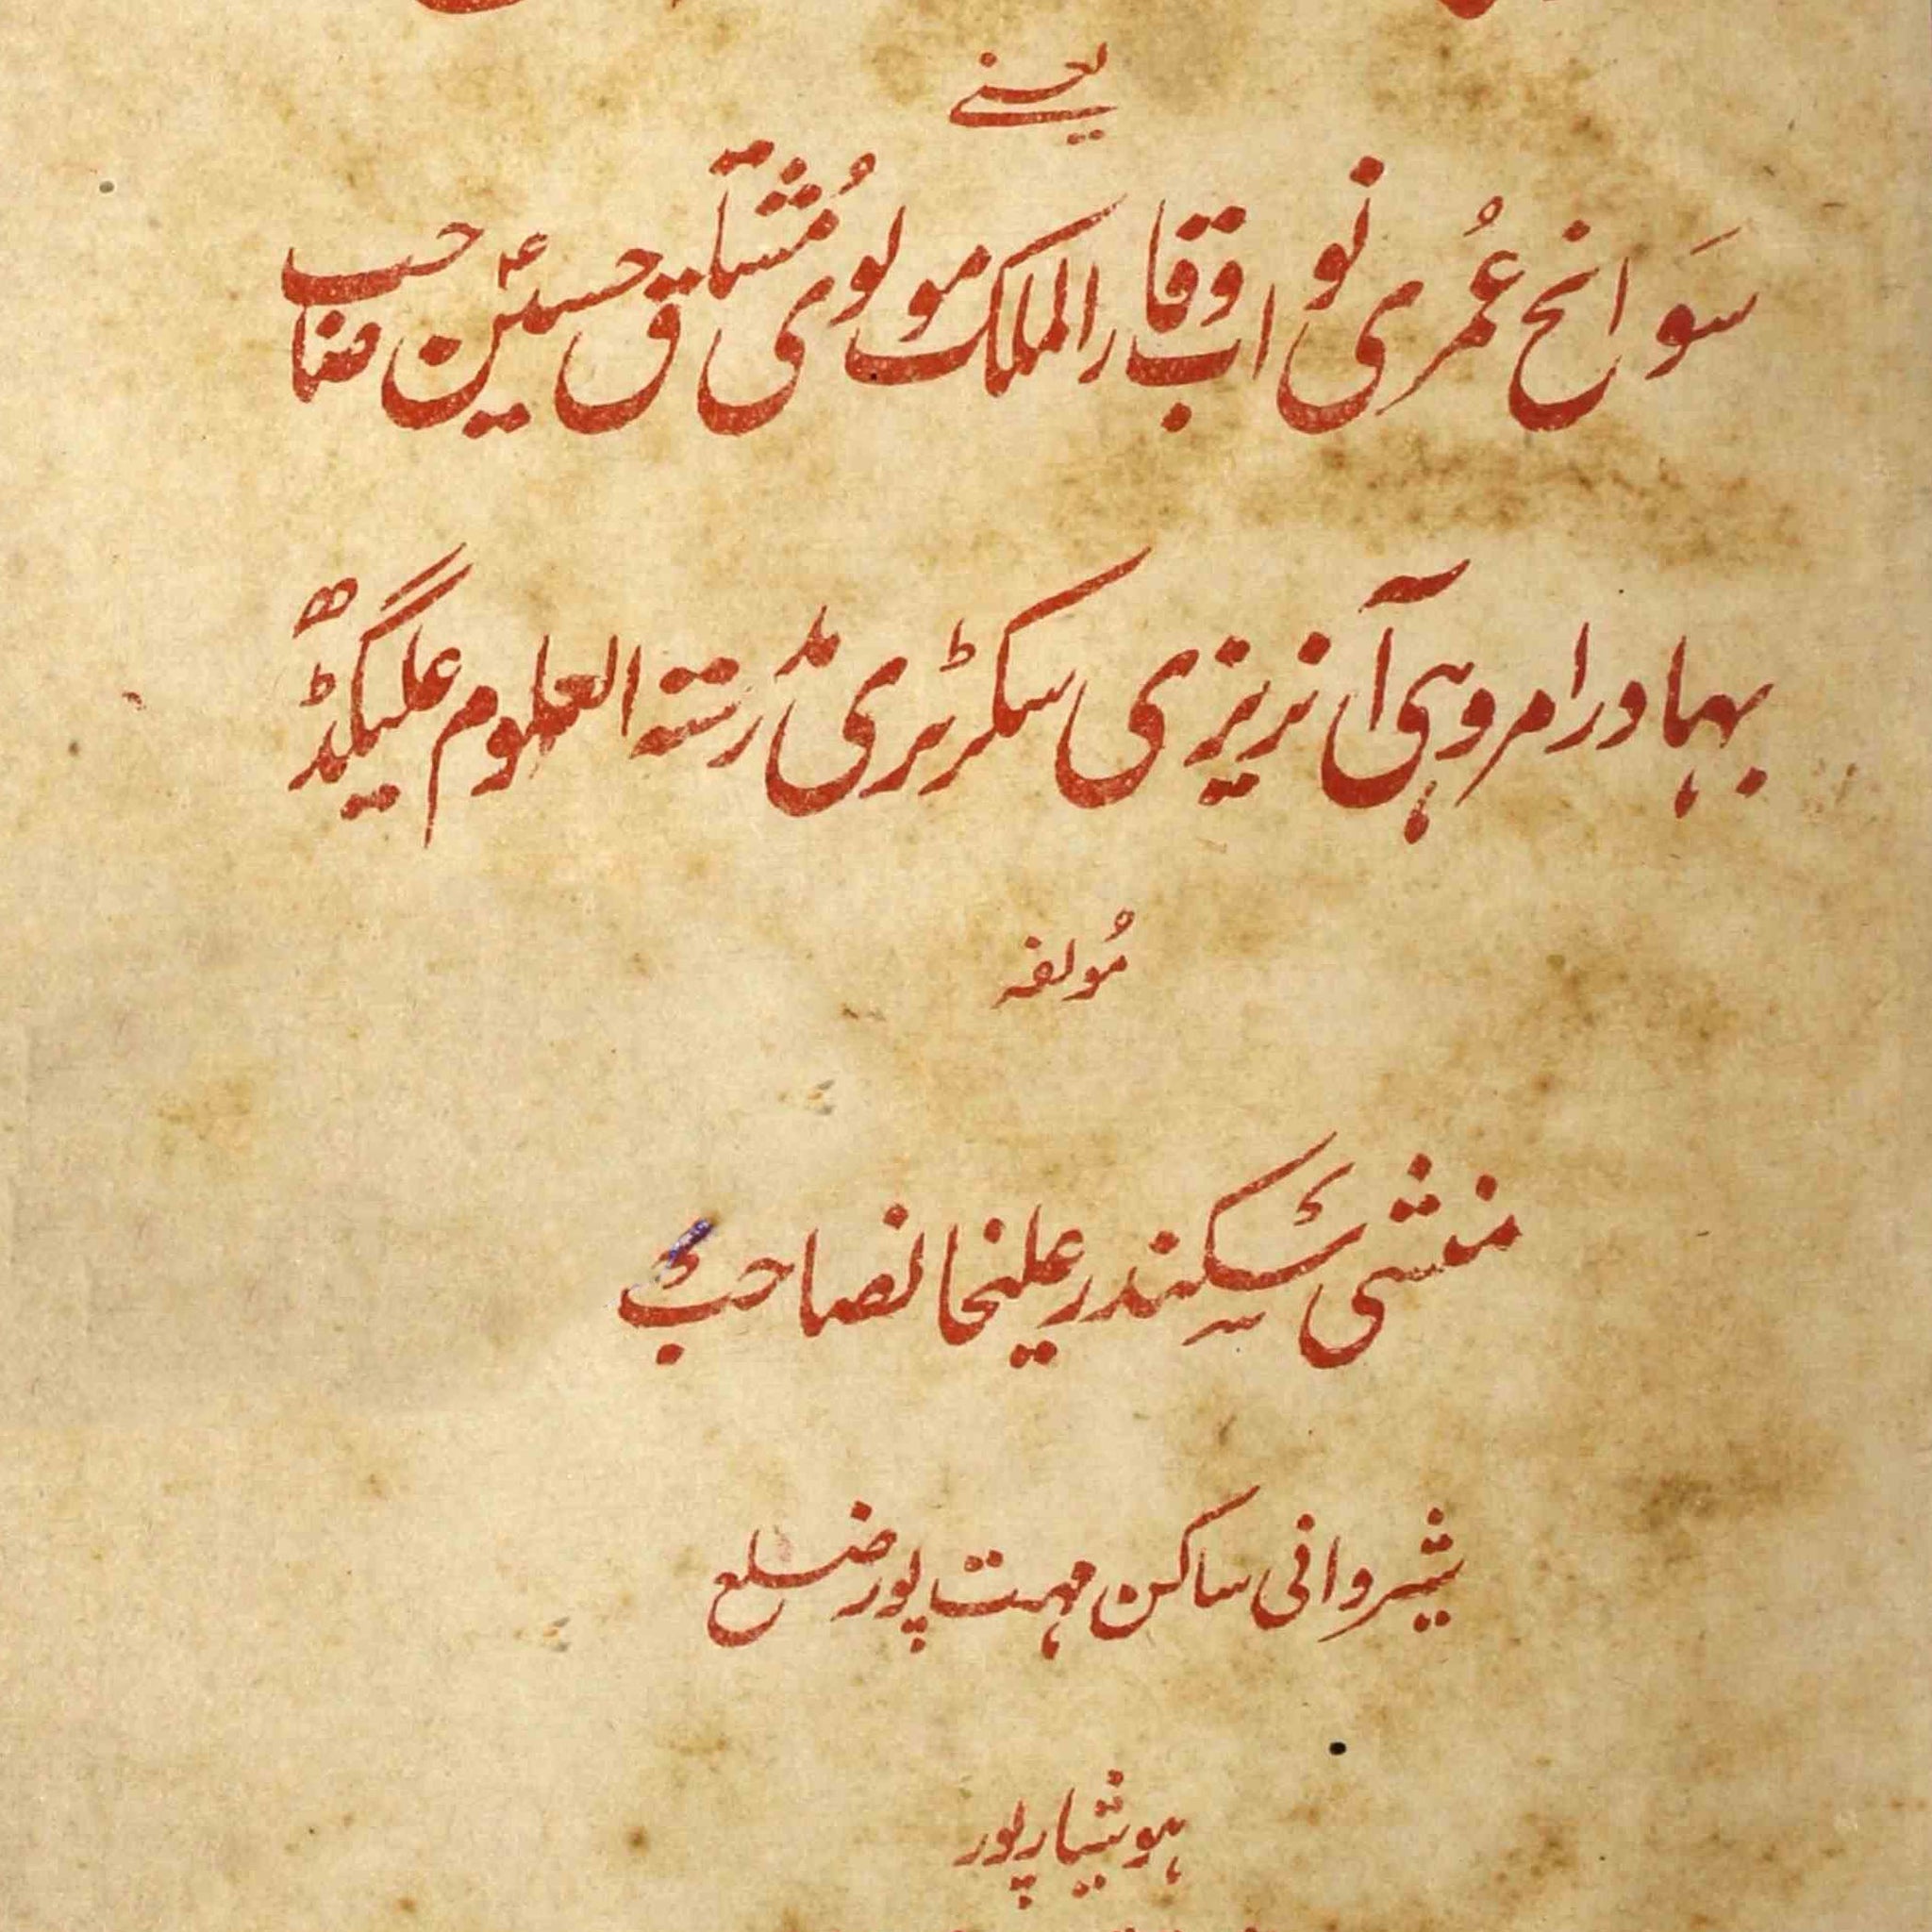 یعنے
سَوانح عُمری نواب وقار الملک مولوی مُشتاق حسین صاحب
بہادر امروہی آنریزی سکرٹری مدرستہ العلوم علیگڈھ
مُولفہ
منشی سکندر علیخانصاحب
شیروانی ساکن مہت پور ضلع
ہوشیارپور